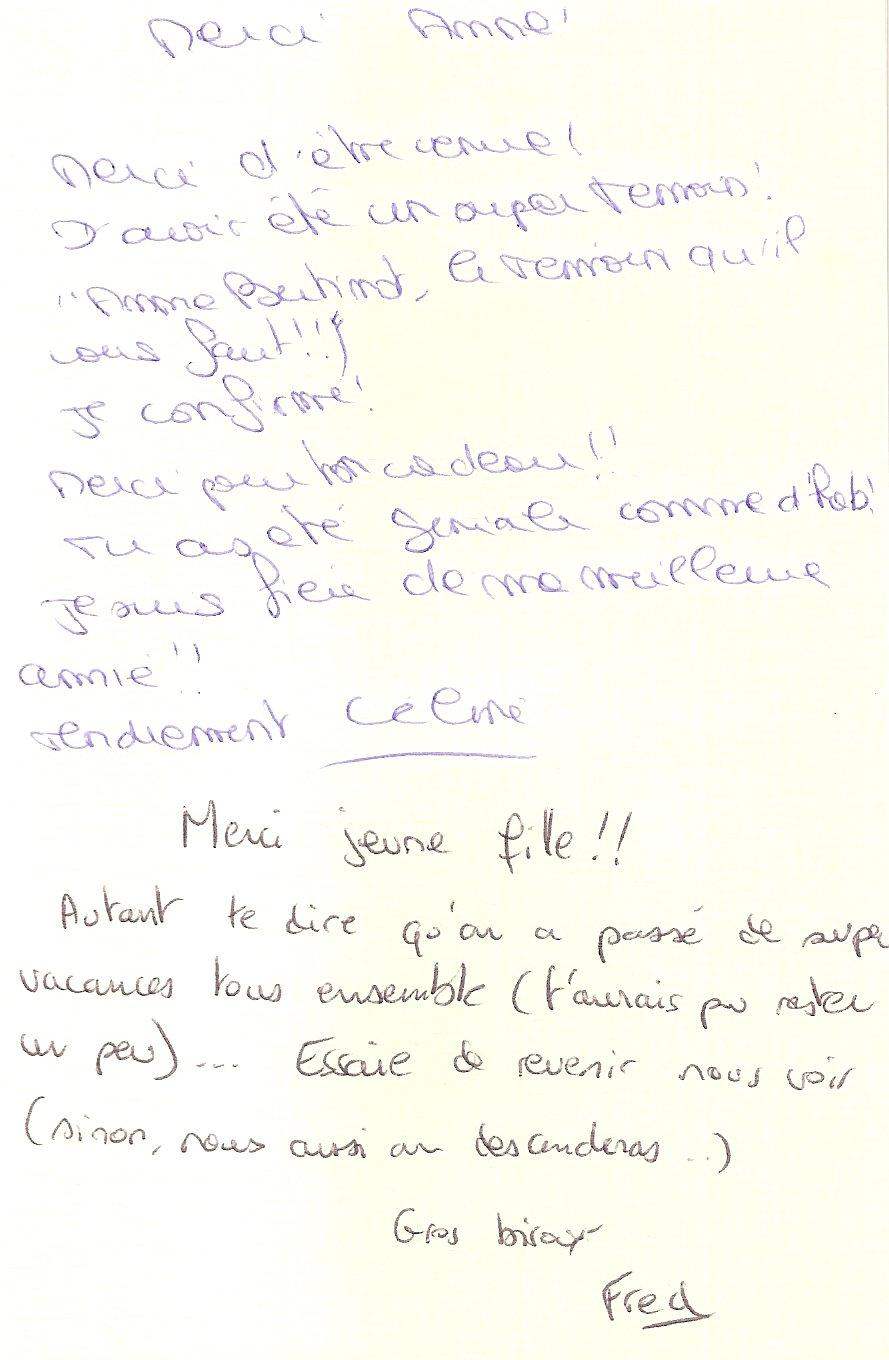 Merci Anne!
Merci d'être venue!
D'avoir été un super temoin!
"Anne Bertinot, le temoin qu'il
vous faut!!"
Je confirme!
Merci pour ton cadeau!!
Tu as été geniale comme d'hab!
Je suis fiere de ma meilleure
amie!!
Tendrement Celine
Merci jeune fille!!
Autant te dire qu'on a passé de super
vacances tous ensemble (t'aurais pu rester
un peu)... Essaie de revenir nous voir
(sinon, nous aussi on descendras...)
Gros bisoux
Fred